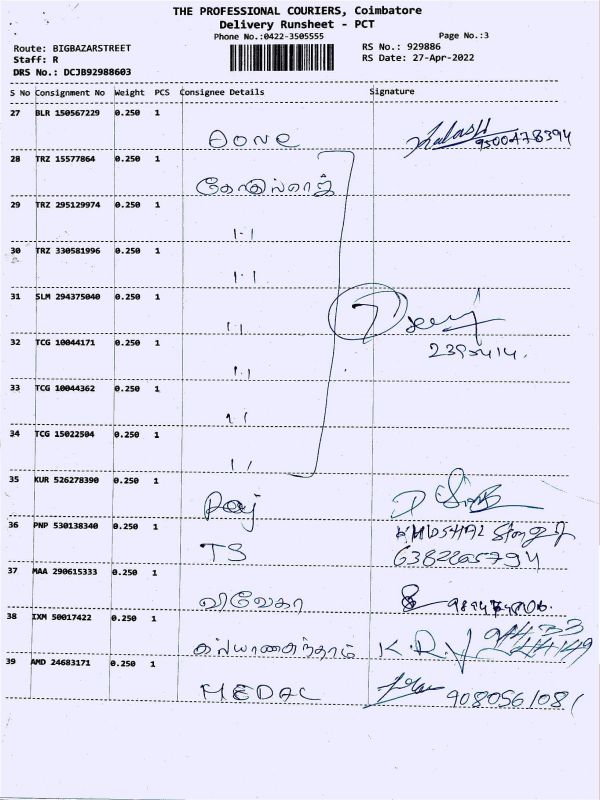 THE PROFESSIONAL COURIERS, Coimbatore
Delivery Runsheet - PCT
Phone No.:0422-3505555
Page No.:3
Route: BIGBAZARSTREET
RS No.: 929886
Staff: R
RS Date: 27-Apr-2022
DRS No.: DCJB92988603
S No Consignment No Weight PCS Consignee Details Signature
27 BLR 150567229 0.250 1
9500478394
28 TRZ 15577864 0.250 1
29 TRZ 295129974 0.250 1
30 TRZ 330581996 0.250 1
31 SLM 294375040 0.250 1
7
32 TCG 10044171 0.250 1
2395414.
33 TCG 10044362 0.250 1
34 TCG 15022504 0.250 1
35 KUR 526278390 0.250 1
Raj
36 PNP 530138340 0.250 1
TS
37 MAA 290615333 0.250 1
விவேகா
38 IXM 50017422 0.250 1
K.R.V
39 AMD 24683171 0.250 1
MEDAL